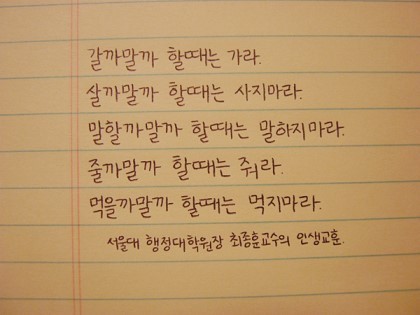 갈까말까 할때는 가라.
살까말까 할때는 사지마라.
말할까말까 할때는 말하지마라.
줄까말까 할때는 줘라.
먹을까말까 할때는 먹지마라.
서울대 행정대학원장 최종훈교수의 인생교훈.